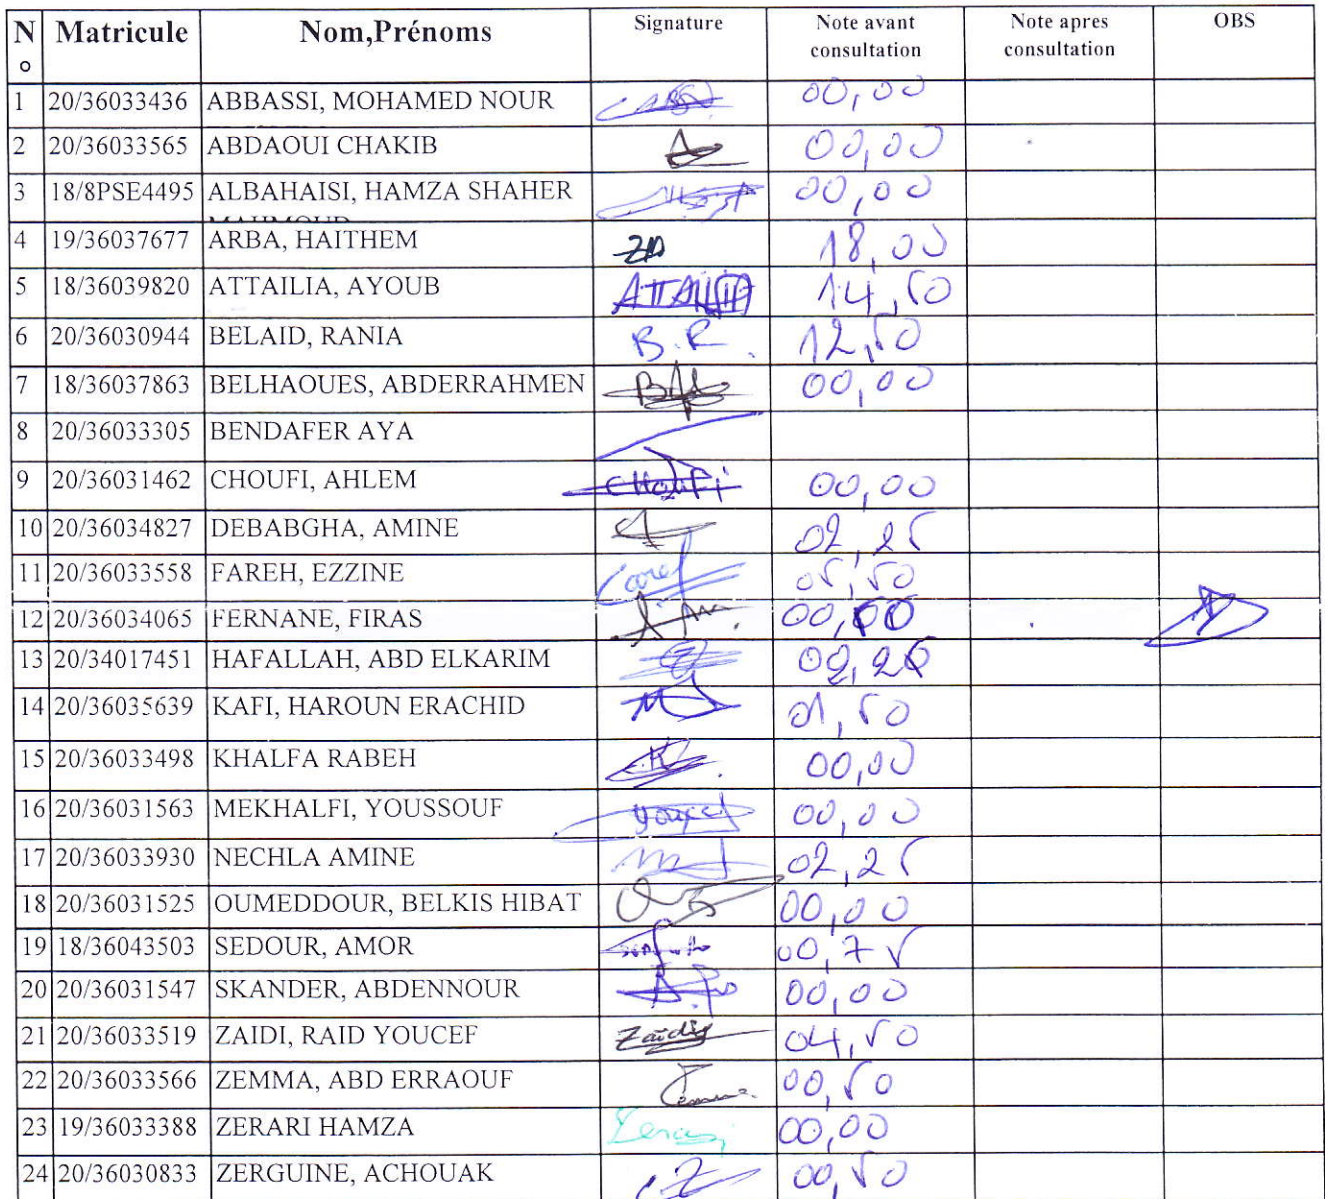 N° Matricule Nom,Prénoms Signature Note avant consultation Note apres consultation OBS
1 20/36033436 ABBASSI, MOHAMED NOUR 00,00
2 20/36033565 ABDAOUI CHAKIB 00,00
3 18/8PSE4495 ALBAHAISI, HAMZA SHAHER MAHMOUD 00,00
4 19/36037677 ARBA, HAITHEM 18,00
5 18/36039820 ATTAILIA, AYOUB ATTAILIA 14,50
6 20/36030944 BELAID, RANIA B.R. 12,50
7 18/36037863 BELHAOUES, ABDERRAHMEN 00,00
8 20/36033305 BENDAFER AYA
9 20/36031462 CHOUFI, AHLEM CHOUFI 00,00
10 20/36034827 DEBABGHA, AMINE 02,25
11 20/36033558 FAREH, EZZINE 05,50
12 20/36034065 FERNANE, FIRAS
13 20/34017451 HAFALLAH, ABD ELKARIM
14 20/36035639 KAFI, HAROUN ERACHID 01,50
15 20/36033498 KHALFA RABEH 00,00
16 20/36031563 MEKHALFI, YOUSSOUF 00,00
17 20/36033930 NECHLA AMINE 02,25
18 20/36031525 OUMEDDOUR, BELKIS HIBAT 00,00
19 18/36043503 SEDOUR, AMOR 00,75
20 20/36031547 SKANDER, ABDENNOUR 00,00
21 20/36033519 ZAIDI, RAID YOUCEF Zaidi 04,50
22 20/36033566 ZEMMA, ABD ERRAOUF 00,50
23 19/36033388 ZERARI HAMZA 00,00
24 20/36030833 ZERGUINE, ACHOUAK 00,50